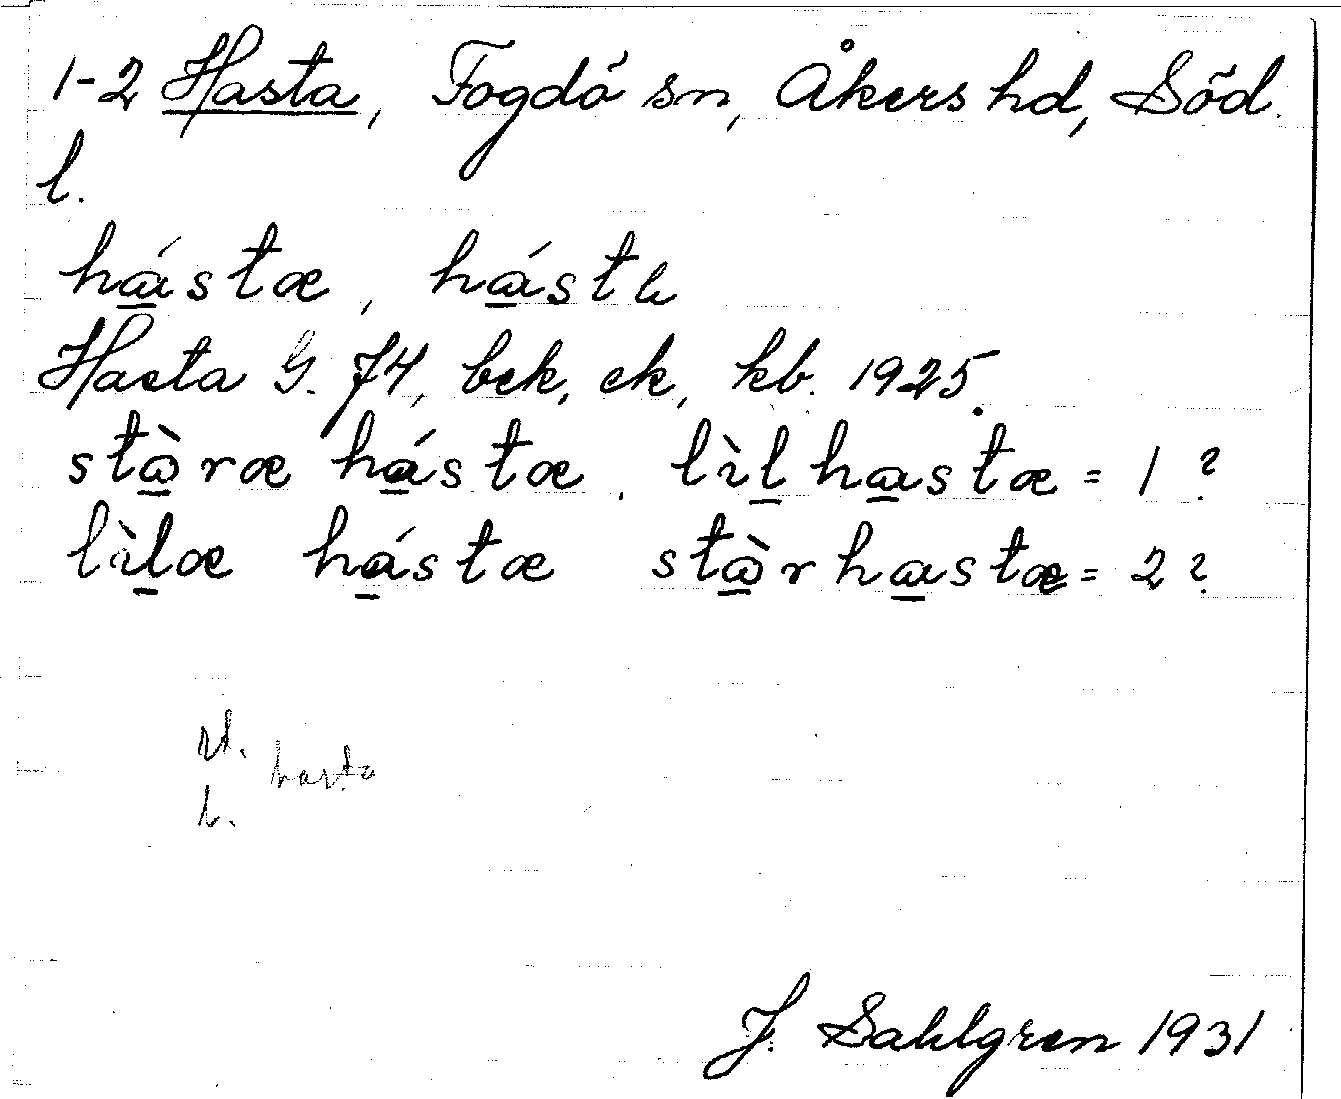 1-2 Hasta, Fogdö sn, Åkers hd, Söd.
l.
hástæ, hást
Hasta G. 74, bek, ek, kb. 1925.
stàræ hástæ, lìlhastæ = 1?
lìlæ hástæ stàrhastæ = 2?
hasta
J. Sahlgren 1931